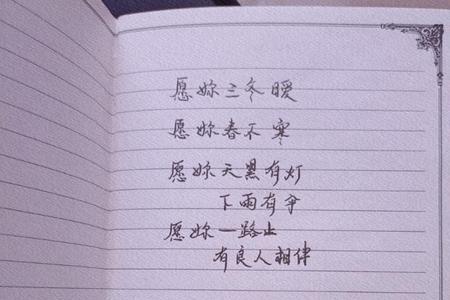 愿妳三冬暖
愿妳春不寒
愿妳天黑有灯
下雨有伞
愿妳一路上
有良人相伴